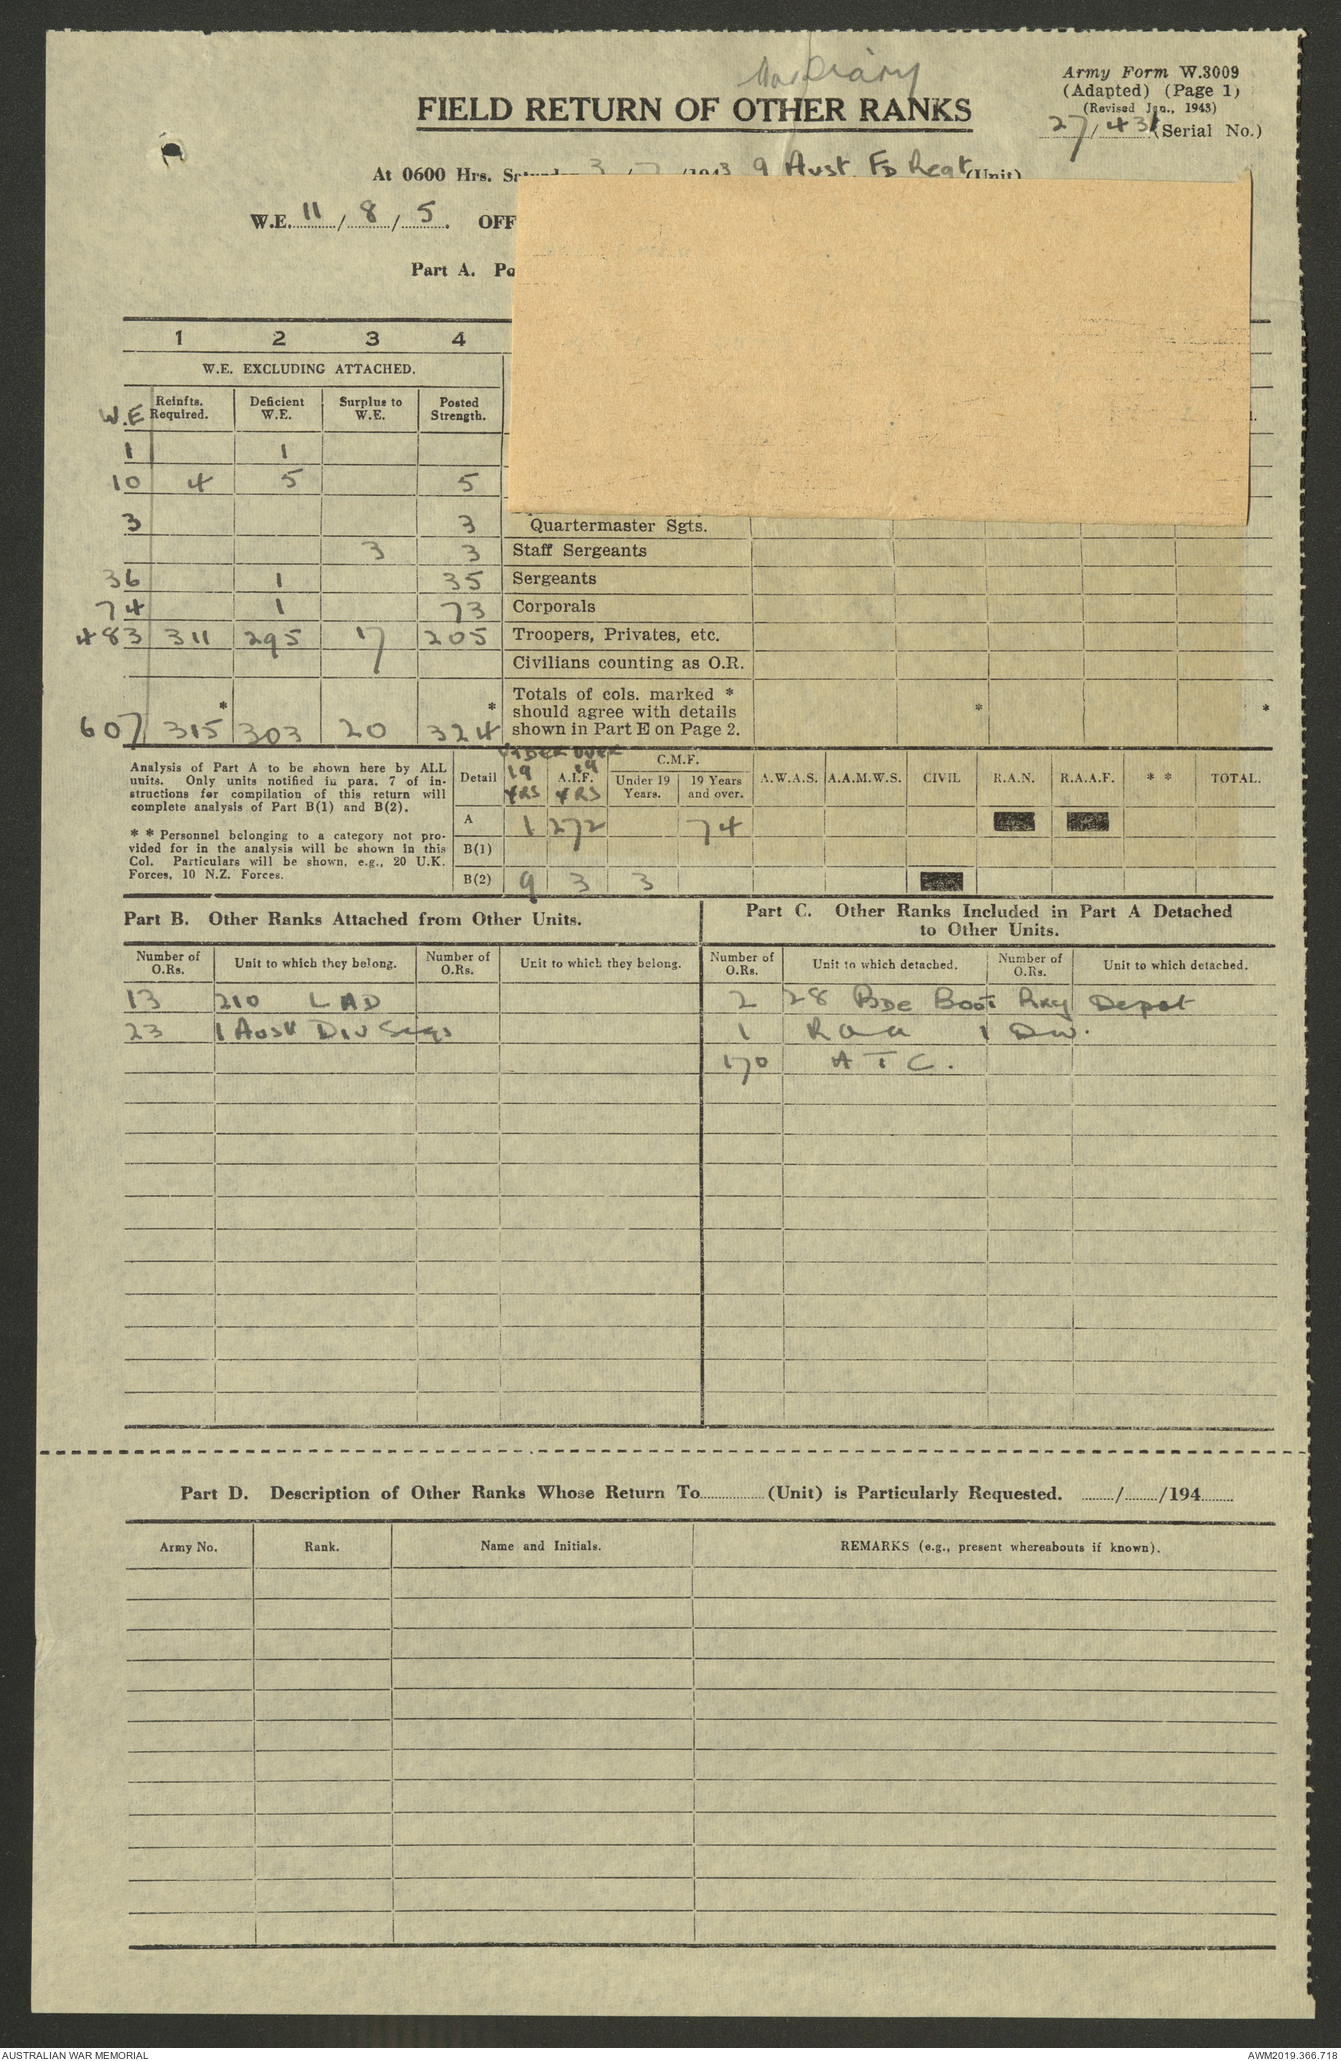 War Diary
Army Form W.3009
(Adapted) (Page 1)
(Revised Jan., 1943)
FIELD RETURN OF OTHER RANKS
27/431 (Serial No.)
At 0600 Hrs. Saturday 3/7/1943 9 Aust. Fd Regt (Unit)
W.E. 11/8/5. OFF
Part A. Po
1 2 3 4
W.E. EXCLUDING ATTACHED.
W.E Reinfts. Required. Deficient W.E. Surplus to W.E. Posted Strength.
1 1
10 4 5 5
3 3 Quartermaster Sgts.
3 3 Staff Sergeants
36 1 35 Sergeants
74 1 73 Corporals
483 311 295 17 205 Troopers, Privates, etc.
Civilians counting as O.R.
Totals of cols. marked *
should agree with details
shown in Part E on Page 2.
607 315* 303 20 324* * *
Analysis of Part A to be shown here by ALL
units. Only units notified in para. 7 of in-
structions for compilation of this return will
complete analysis of Part B(1) and B(2).
* * Personnel belonging to a category not pro-
vided for in the analysis will be shown in this
Col. Particulars will be shown, e.g., 20 U.K.
Forces, 10 N.Z. Forces.
UNDER OVER C.M.F.
Detail 19 YRS A.I.F. 19 YRS Under 19 Years. 19 Years and over. A.W.A.S. A.A.M.W.S. CIVIL R.A.N. R.A.A.F. * * TOTAL.
A 1 272 74
B(1)
B(2) 9 3 3
Part B. Other Ranks Attached from Other Units.
Part C. Other Ranks Included in Part A Detached
to Other Units.
Number of O.Rs. Unit to which they belong. Number of O.Rs. Unit to which they belong. Number of O.Rs. Unit to which detached. Number of O.Rs. Unit to which detached.
13 210 LAD 2 28 Bde Boot Rky Depot
23 1 Aust Div Sigs 1 Raa 1 Div.
170 ATC.
Part D. Description of Other Ranks Whose Return To (Unit) is Particularly Requested. / /194
Army No. Rank. Name and Initials. REMARKS (e.g., present whereabouts if known).
AUSTRALIAN WAR MEMORIAL
AWM2019.366.718